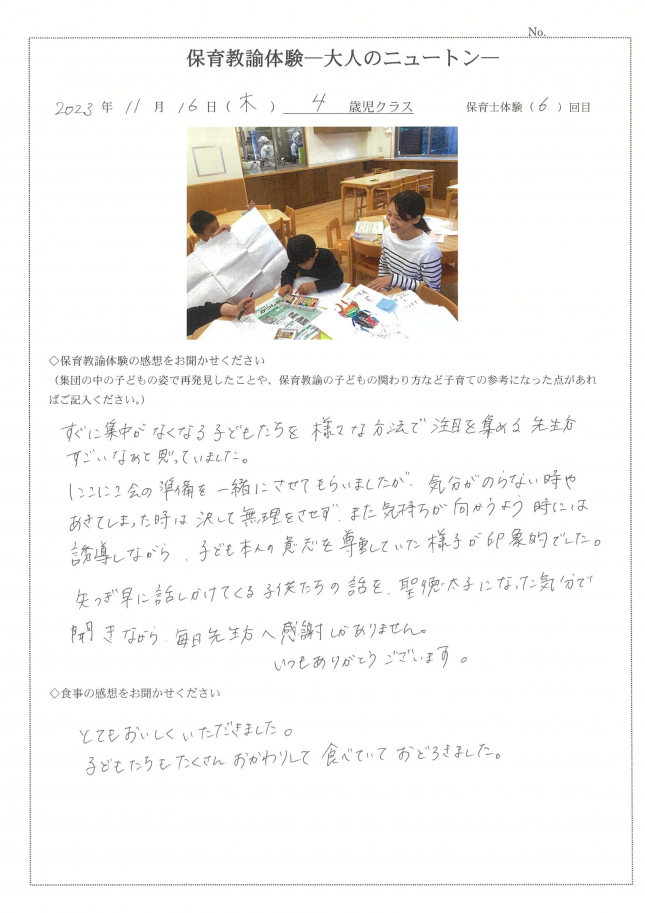 No.
保育教諭体験―大人のニュートン―
2023 年 11 月 16 日（木 ） 4 歳児クラス 保育士体験（ 6 ）回目
◇保育教諭体験の感想をお聞かせください
（集団の中の子どもの姿で再発見したことや、保育教諭の子どもの関わり方など子育ての参考になった点があれ
ばご記入ください。）
すぐに集中がなくなる子どもたちを 様々な方法で注目を集める先生方
すごいなぁと思っていました。
にこにこ会の準備を一緒にさせてもらいましたが、気分がのらない時や
あきてしまった時は決して無理をさせず、また気持ちが向かうよう時には
誘導しながら、子ども本人の意志を尊重していた様子が印象的でした。
矢つぎ早に話しかけてくる子供たちの話を、聖徳太子になった気分で
聞きながら、毎日先生方へ感謝しかありません。
いつもありがとうございます。
◇食事の感想をお聞かせください
とてもおいしくいただきました。
子どもたちもたくさんおかわりして食べていておどろきました。